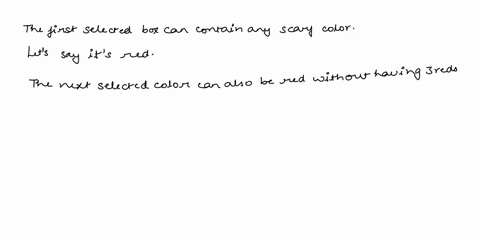 The first selected box can contain any scary color.
Let's say it's red.
The next selected color can also be red without having 3 reds